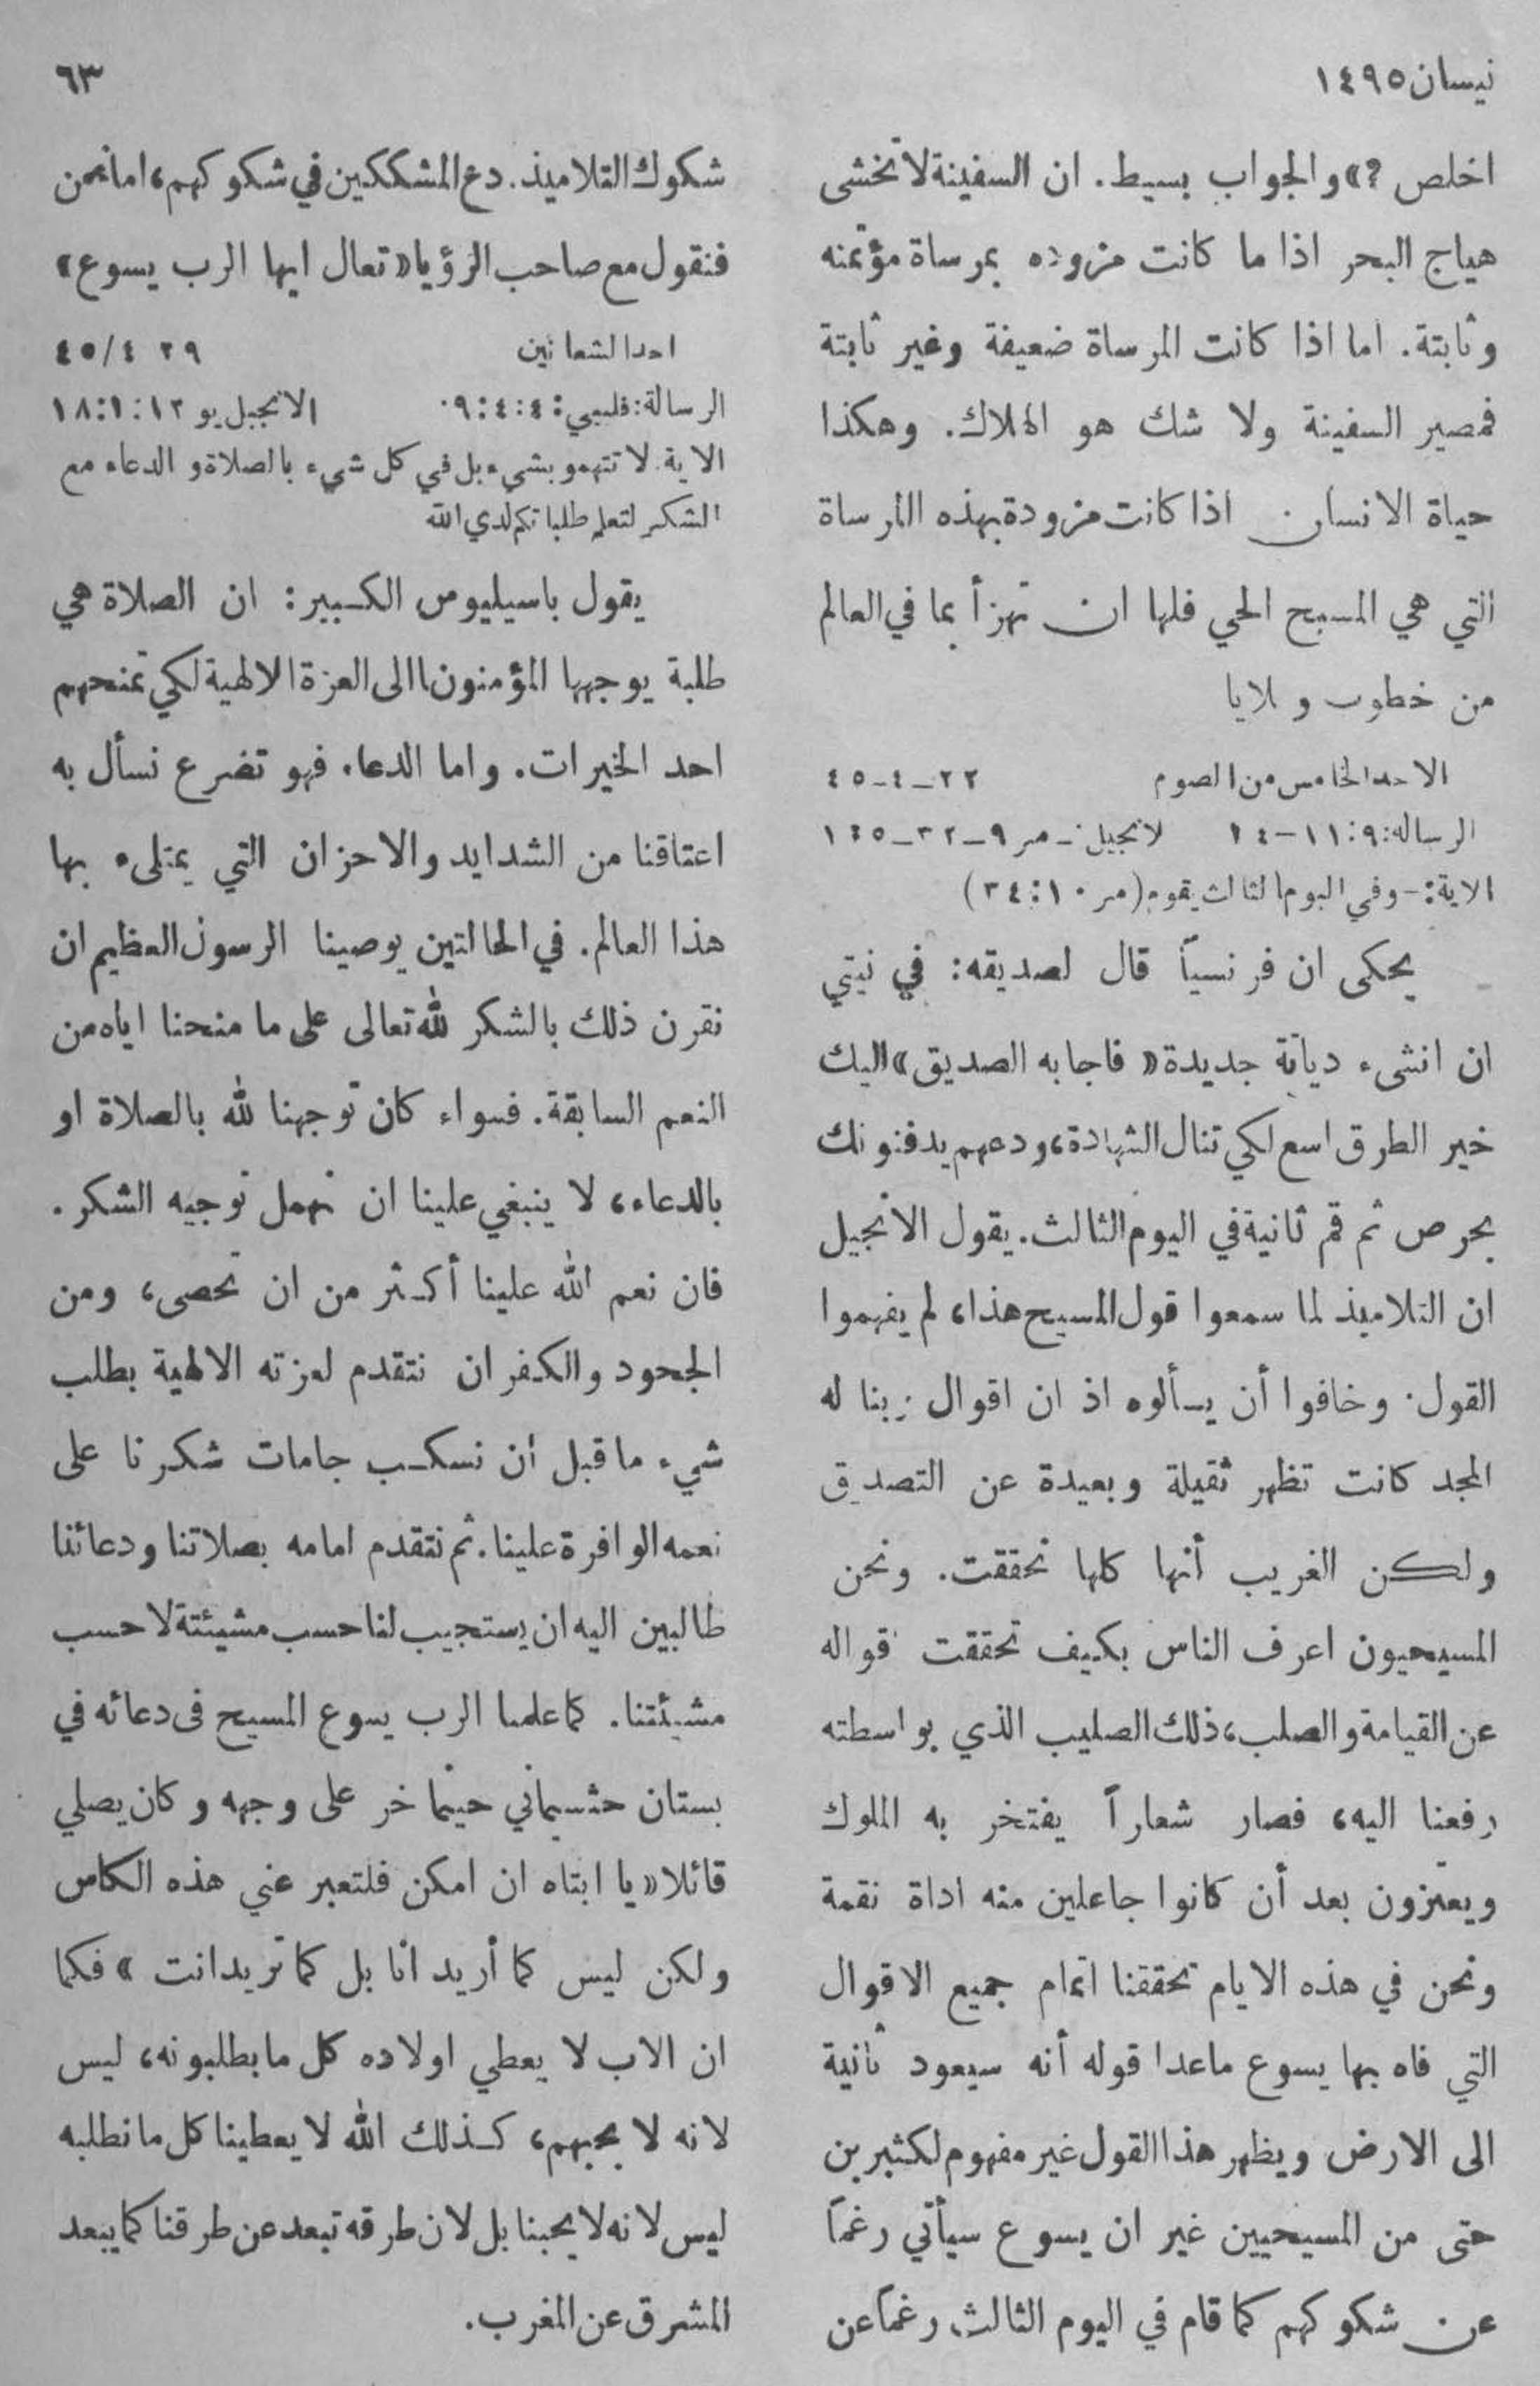 نيسان ١٤٩٥
٦٣
اخلص ?» والجواب بسيط. ان السفينة لا تخشى
هياج البحر اذا ما كانت مزوده بمرساة مؤتمنه
وثابتة. اما اذا كانت المرساة ضعيفة وغير ثابتة
فمصير السفينة ولا شك هو الهلاك. وهكذا
حياة الانسان. اذا كانت مزودة بهذه المرساة
التي هي المسيح الحي فلها ان تهزأ بما في العالم
من خطوب و بلايا
الاحد الخامس من الصوم ٢٢-٤-٤٥
الرساله: ٩: ١١-١٤ لانجيل: - مر ٩-٣٢-١٤٥
الاية: - وفي اليوم الثالث يقوم (مر ١٠: ٣٤)
يحكى ان فرنسياً قال لصديقه: في نيتي
ان انشىء ديانة جديدة « فاجابه الصديق » اليك
خير الطرق اسع لكي تنال الشهادة، ودعهم يدفنونك
بحرص ثم قم ثانية في اليوم الثالث. يقول الانجيل
ان التلاميذ لما سمعوا قول المسيح هذا، لم يفهموا
القول. وخافوا أن يسألوه اذ ان اقوال ربنا له
المجد كانت تظهر ثقيلة وبعيدة عن التصديق
ولكن الغريب أنها كلها تحققت. ونحن
المسيحيون اعرف الناس بكيف تحققت اقواله
عن القيامة والصلب، ذلك الصليب الذي بواسطته
رفعنا اليه، فصار شعاراً يفتخر به الملوك
ويعتزون بعد أن كانوا جاعلين منه اداة نقمة
ونحن في هذه الايام تحققنا اتمام جميع الاقوال
التي فاه بها يسوع ماعدا قوله أنه سيعود ثانية
الى الارض ويظهر هذا القول غير مفهوم لكثيرين
حتى من المسيحيين غير ان يسوع سيأتي رغماً
عن شكوكهم كما قام في اليوم الثالث رغماً عن
شكوك التلاميذ. دع المشككين في شكوكهم، اما نحن
فنقول مع صاحب الرؤيا « تعال ايها الرب يسوع »
احد الشعانين ٢٩ ٤/٤٥
الرسالة: فليبي: ٤:٤: ٠٩ الانجيل يو ١٢: ١: ١٨
الاية. لا تتهمو بشيء بل في كل شيء بالصلاة و الدعاء مع
الشكر لتعلم طلباتكم لدي الله
يقول باسيليوس الكبير: ان الصلاة هي
طلبة يوجهها المؤمنون الى العزة الالهية لكي تمنحهم
احد الخيرات. واما الدعاء فهو تضرع نسأل به
اعتاقنا من الشدايد والاحزان التي يمتلىء بها
هذا العالم. في الحالتين يوصينا الرسول العظيم ان
نقرن ذلك بالشكر لله تعالى على ما منحنا اياه من
النعم السابقة. فسواء كان توجهنا لله بالصلاة او
بالدعاء، لا ينبغي علينا ان نهمل توجيه الشكر.
فان نعم الله علينا أكثر من ان تحصى، ومن
الجحود والكفران نتقدم لعزته الالهية بطلب
شيء ما قبل أن نسكب جامات شكرنا على
نعمه الوافرة علينا. ثم نتقدم امامه بصلاتنا ودعائنا
طالبين اليه ان يستجيب لنا حسب مشيئتة لا حسب
مشيئتنا. كما علمنا الرب يسوع المسيح في دعائه في
بستان حثسيماني حينما خر على وجهه وكان يصلي
قائلا « يا ابتاه ان امكن فلتعبر عني هذه الكاس
ولكن ليس كما أريد انا بل كما تريد انت » فكما
ان الاب لا يعطي اولاده كل ما يطلبونه، ليس
لانه لا يحبهم، كذلك الله لا يعطينا كل ما نطلبه
ليس لانه لا يحبنا بل لان طرقه تبعد عن طرقنا كما يبعد
المشرق عن المغرب.